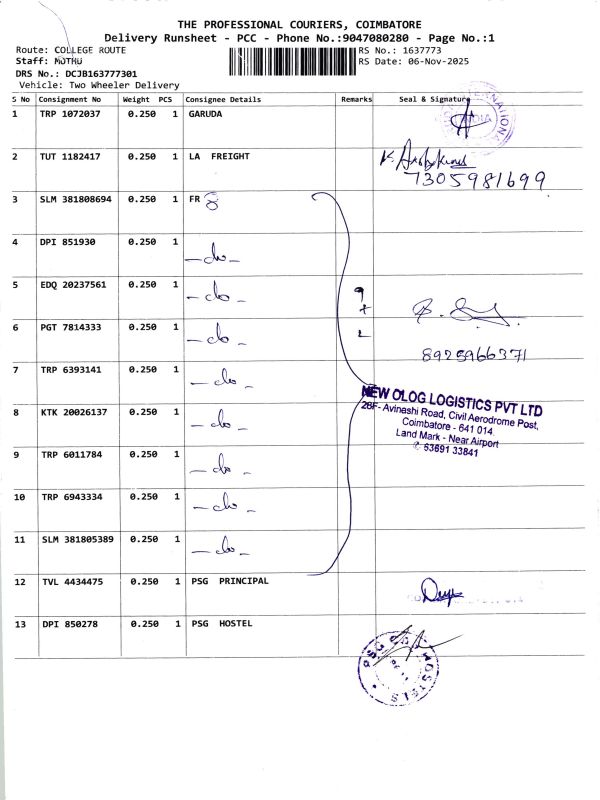 THE PROFESSIONAL COURIERS, COIMBATORE
Delivery Runsheet - PCC - Phone No.:9047080280 - Page No.:1
Route: COLLEGE ROUTE RS No.: 1637773
Staff: MUTHU RS Date: 06-Nov-2025
DRS No.: DCJB163777301
Vehicle: Two Wheeler Delivery
S No Consignment No Weight PCS Consignee Details Remarks Seal & Signature
1 TRP 1072037 0.250 1 GARUDA
INDIA
2 TUT 1182417 0.250 1 LA FREIGHT
7305981699
3 SLM 381808694 0.250 1 FR 8
4 DPI 851930 0.250 1 -do-
5 EDQ 20237561 0.250 1 -do-
9+2
6 PGT 7814333 0.250 1 -do-
8925966371
7 TRP 6393141 0.250 1 -do-
NEW OLOG LOGISTICS PVT LTD
26F- Avinashi Road, Civil Aerodrome Post,
Coimbatore - 641 014
Land Mark - Near Airport
✆ 63691 33841
8 KTK 20026137 0.250 1 -do-
9 TRP 6011784 0.250 1 -do-
10 TRP 6943334 0.250 1 -do-
11 SLM 381805389 0.250 1 -do-
12 TVL 4434475 0.250 1 PSG PRINCIPAL
13 DPI 850278 0.250 1 PSG HOSTEL
PSG HOSTELS